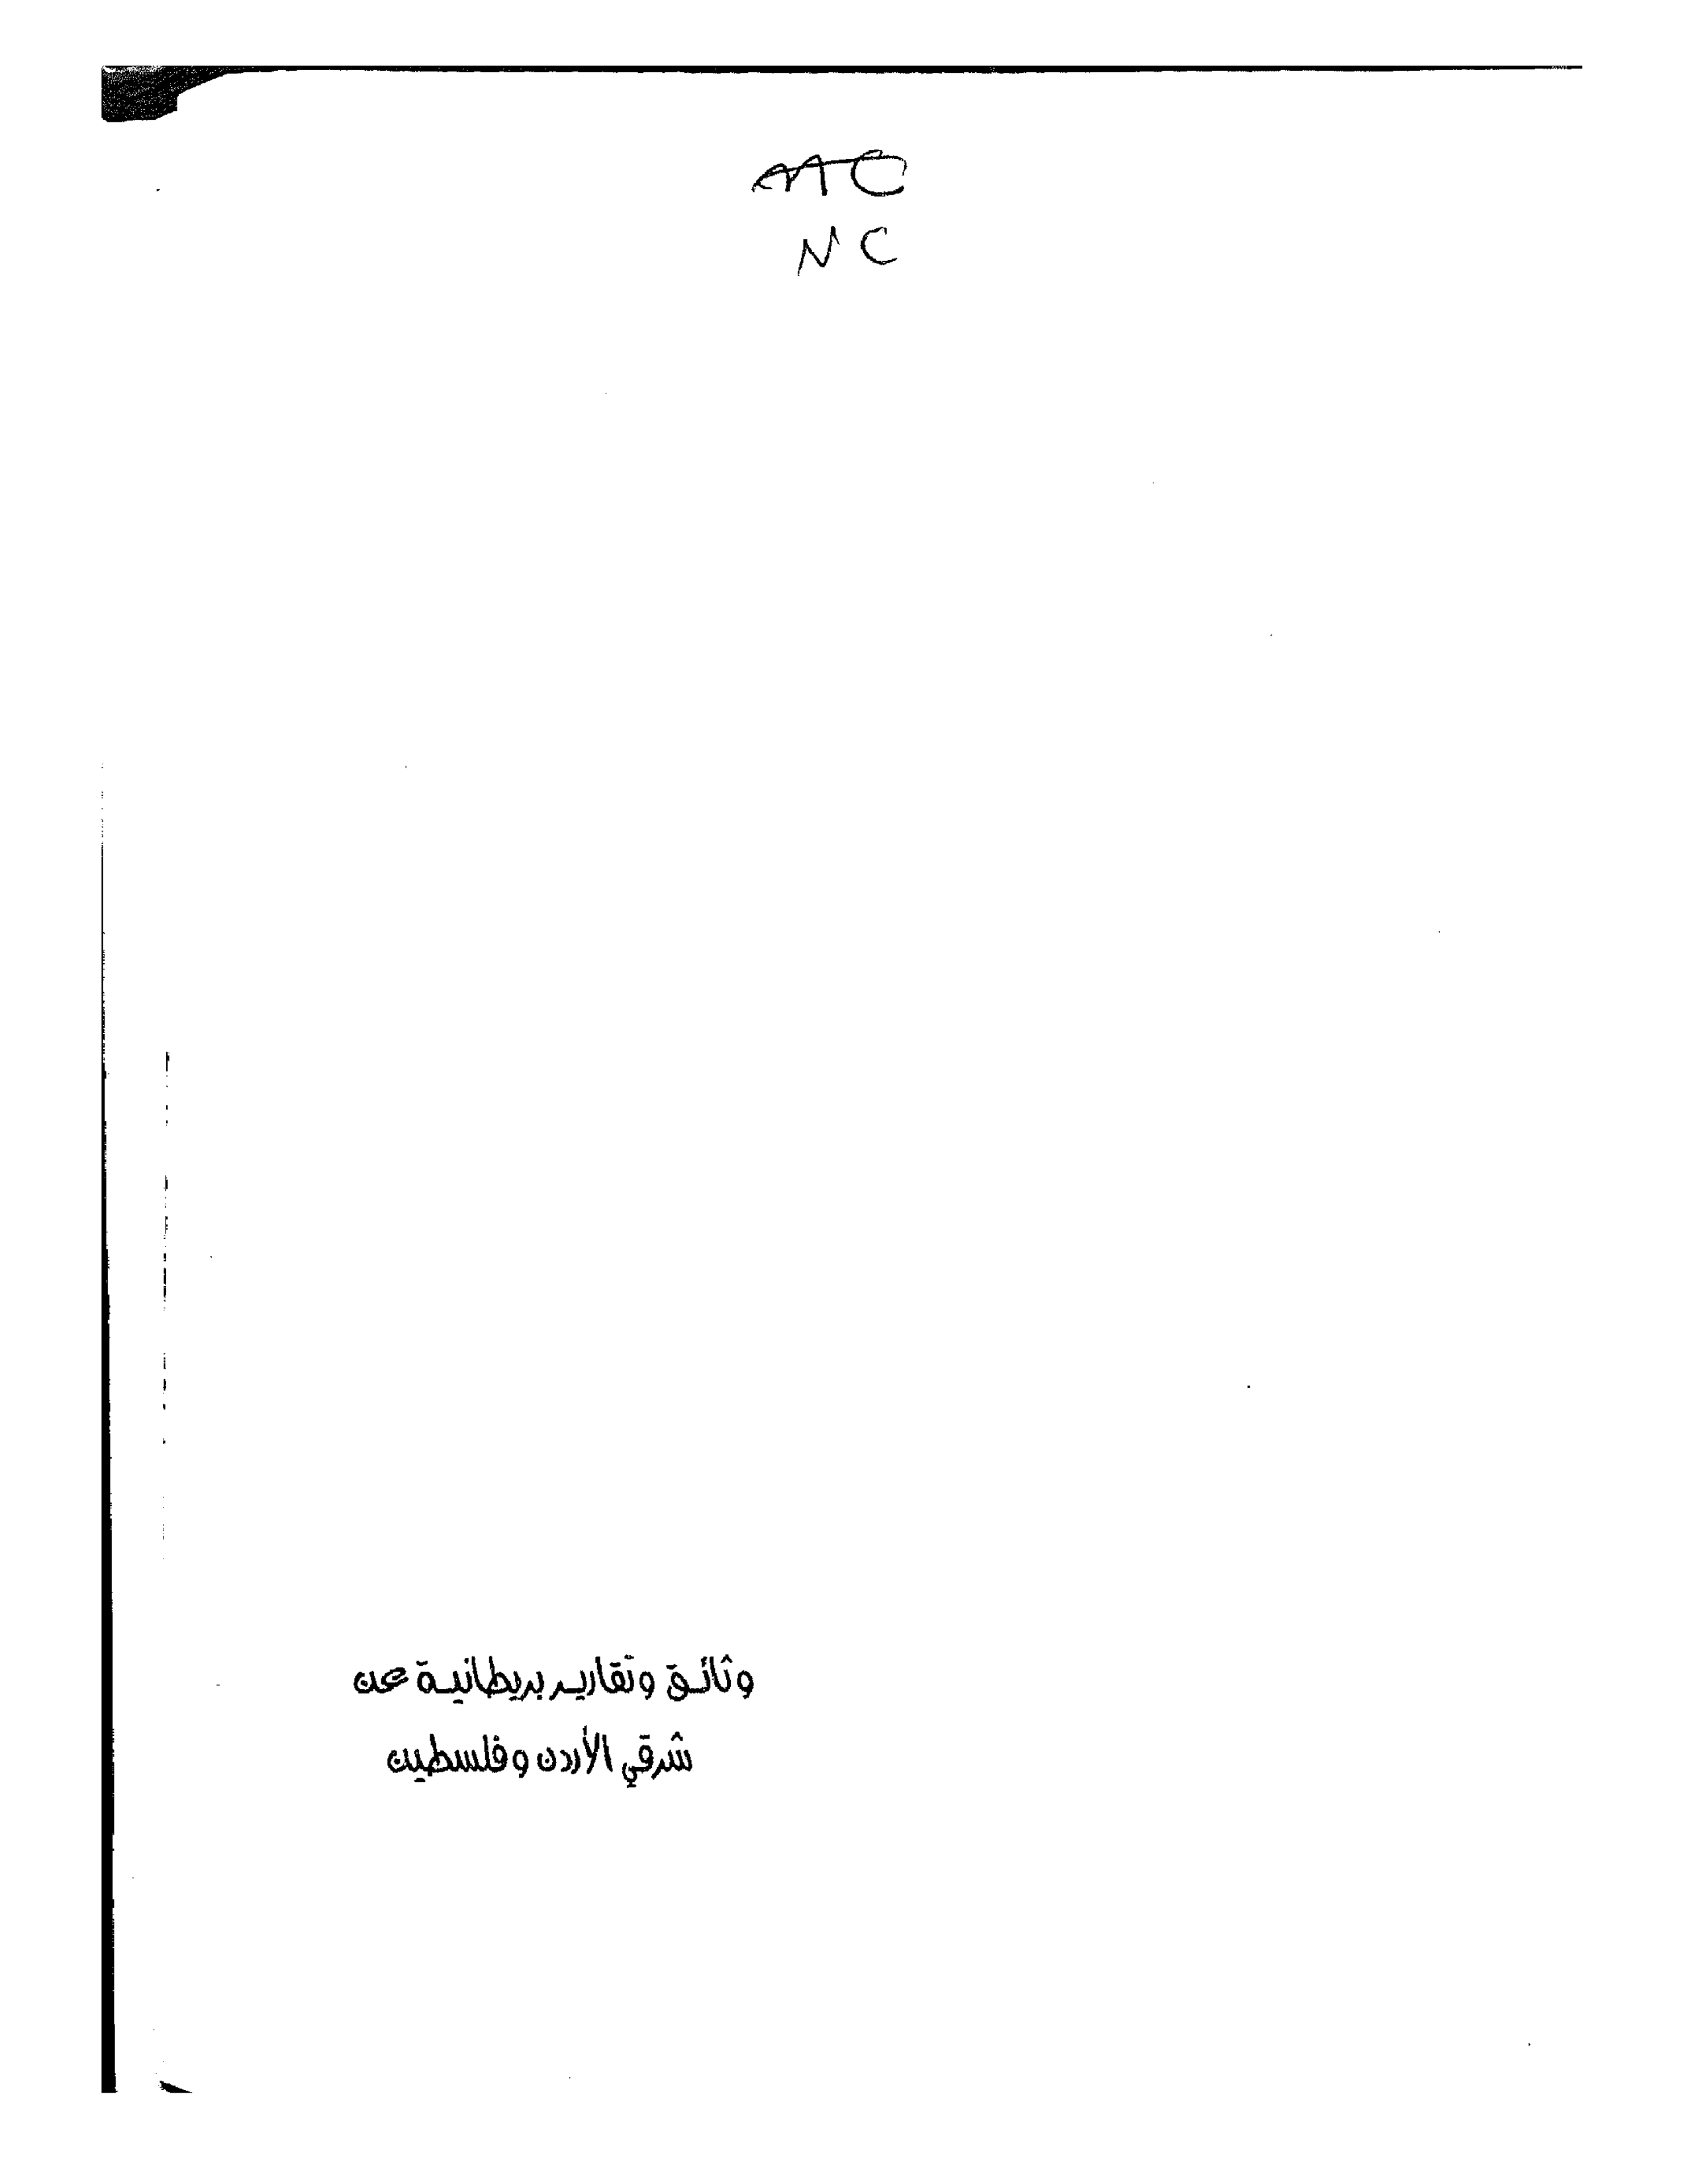 NC
وثائق وتقارير بريطانية عن
شرقي الأردن وفلسطين